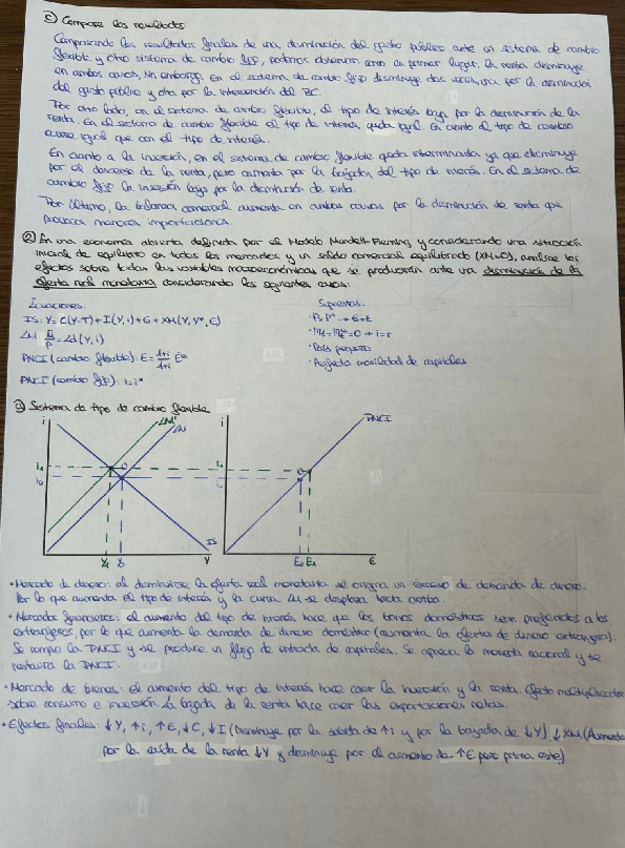 c) Compare los resultados
Comparando los resultados finales de una disminución del gasto público ante un sistema de cambio
flexible y otro sistema de cambio fijo, podemos observar como en primer lugar, la renta disminuye
en ambos casos, sin embargo. En el sistema de cambio fijo disminuye dos veces, una por la disminución
del gasto público y otra por la intervención del BC.
Por otro lado, en el sistema de cambio flexible, el tipo de interés baja por la disminución de la
renta. En el sistema de cambio flexible el tipo de interés queda igual. En cuanto al tipo de cambio
ocurre igual que con el tipo de interés.
En cuanto a la inversión, en el sistema de cambio flexible queda indeterminada ya que disminuye
por el descenso de la renta, pero aumenta por la bajada del tipo de interés. En el sistema de
cambio fijo la inversión baja por la disminución de renta.
Por último, la balanza comercial aumenta en ambos casos por la disminución de renta que
provoca menores importaciones.
② En una economía abierta definida por el Modelo Mundell-Fleming y considerando una situación
inicial de equilibrio en todos los mercados y un saldo comercial equilibrado (XN=0), analice los
efectos sobre todas las variables macroeconómicas que se producirán ante una disminución de la
oferta real monetaria considerando los siguientes casos:
Ecuaciones:
IS: Y= C(Y-T)+I(Y,i)+G+XN(Y,Y*,E)
LM: M/P = L(Y,i)
PNCI (cambio flexible): E= 1+i/1+i* Eᵉ
PNCI (cambio fijo): i=i*
Supuestos:
· P=P* → E=E
· i=r
· País pequeño
· Perfecta movilidad de capitales
a) Sistema de tipo de cambio flexible
i
LM'
LM
i₁
i₀
1
0
IS
Y₁
Y₀
Y
i
PNCI
i₁
i₀
E₀ E₁
E
· Mercado de dinero: al disminuirse la oferta real monetaria se origina un exceso de demanda de dinero.
Por lo que aumenta el tipo de interés y la curva LM se desplaza hacia arriba.
· Mercados financieros: el aumento del tipo de interés hace que los bonos domésticos sean preferidos a los
extranjeros, por lo que aumenta la demanda de dinero doméstico (aumenta la oferta de dinero extranjero).
Se rompe la PNCI y se produce un flujo de entrada de capitales. Se aprecia la moneda nacional y se
restaura la PNCI.
· Mercado de bienes: el aumento del tipo de interés hace caer la inversión y la renta. Efecto multiplicador
sobre consumo e inversión. La bajada de la renta hace caer las exportaciones netas.
· Efectos finales: ↓Y, ↑i, ↑E, ↓C, ↓I (Disminuye por la subida de ↑i y por la bajada de ↓Y) ↓XN (Aumenta
por la caída de la renta ↓Y y disminuye por el aumento de ↑E pero prima este)